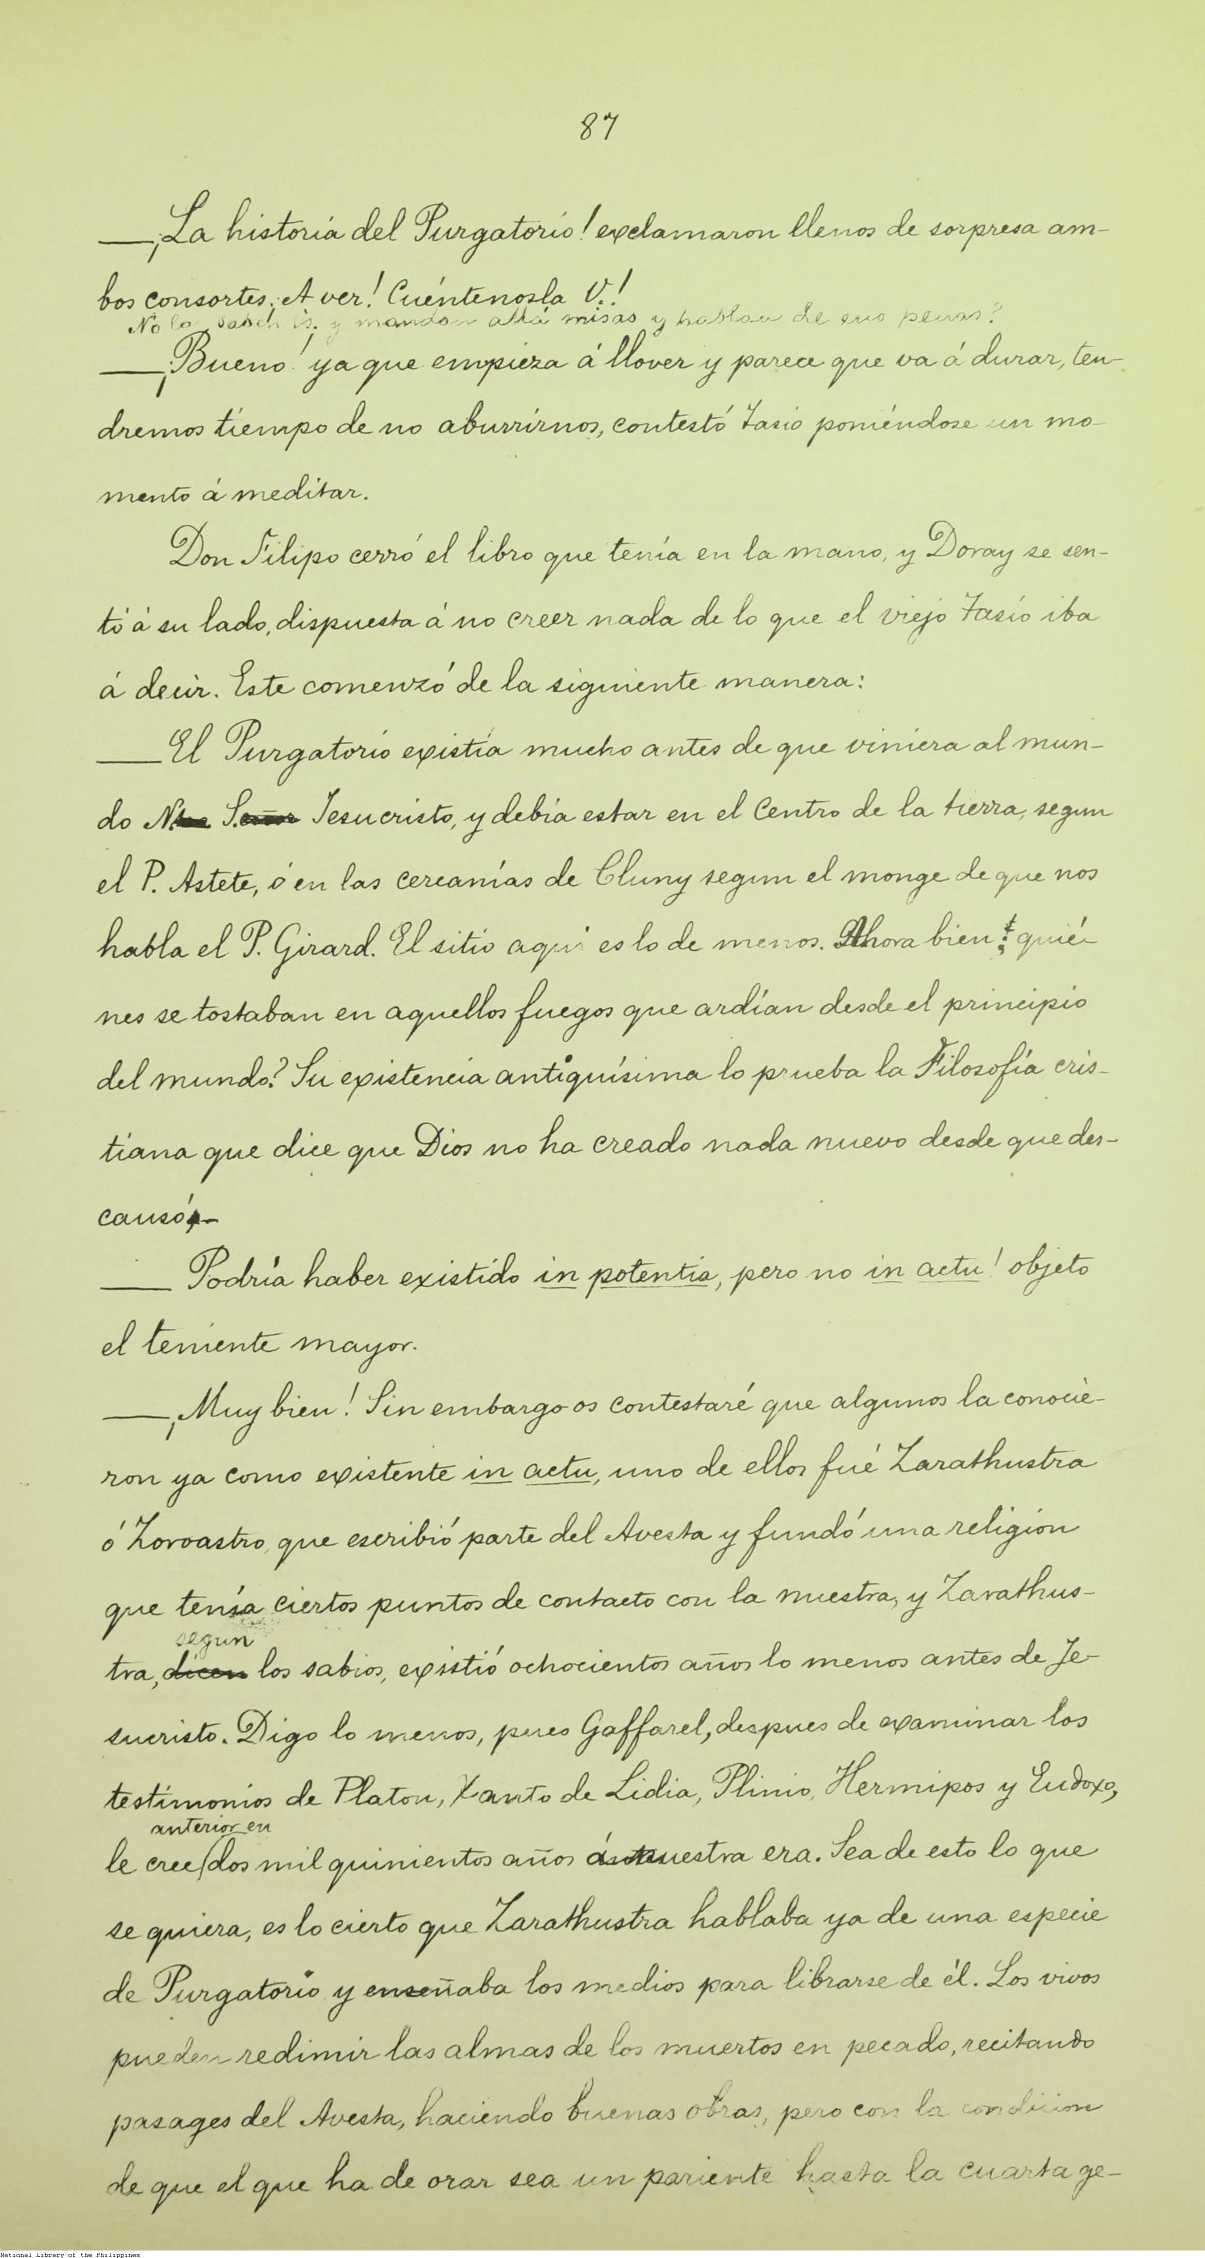 87
—¡La historia del Purgatorio! exclamaron llenos de sorpresa am-
bos consortes. A ver! Cuéntenosla V.!
No la sabeis. y mandan allá misas y hablan de sus penas?
—¡Bueno! ya que empieza á llover y parece que va á durar, ten-
dremos tiempo de no aburrirnos, contestó Tasio poniéndose un mo-
mento á meditar.
Don Filipo cerró el libro que tenía en la mano, y Doray se sen-
tó á su lado, dispuesta á no creer nada de lo que el viejo Tasio iba
á decir. Este comenzó de la siguiente manera:
—El Purgatorio existía mucho antes de que viniera al mun-
do N. S. Jesucristo, y debía estar en el Centro de la tierra, segun
el P. Astete, ó en las cercanías de Cluny segun el monge de que nos
habla el P. Girard. El sitio aquí es lo de menos. Ahora bien ¿quié-
nes se tostaban en aquellos fuegos que ardían desde el principio
del mundo? Su existencia antiquísima lo prueba la Filosofía cris-
tiana que dice que Dios no ha creado nada nuevo desde que des-
cansó.
— Podría haber existido in potentia, pero no in actu! objeto
el teniente mayor.
—¡Muy bien! Sin embargo os contestaré que algunos la conocie-
ron ya como existente in actu, uno de ellos fué Zarathustra
ó Zoroastro, que escribió parte del Avesta y fundó una religion
que tenía ciertos puntos de contacto con la nuestra, y Zarathus-
segun
tra, dicen los sabios, existió ochocientos años lo menos antes de Je-
sucristo. Digo lo menos, pues Gaffarel, despues de examinar los
testimonios de Platon, Xanto de Lidia, Plinio, Hermipos y Eudoxo,
anterior en
le cree dos mil quinientos años á nuestra era. Sea de esto lo que
se quiera, es lo cierto que Zarathustra hablaba ya de una especie
de Purgatorio y enseñaba los medios para librarse de él. Los vivos
pueden redimir las almas de los muertos en pecado, recitando
pasages del Avesta, haciendo buenas obras, pero con la condicion
de que el que ha de orar sea un pariente hasta la cuarta ge-
National Library of the Philippines